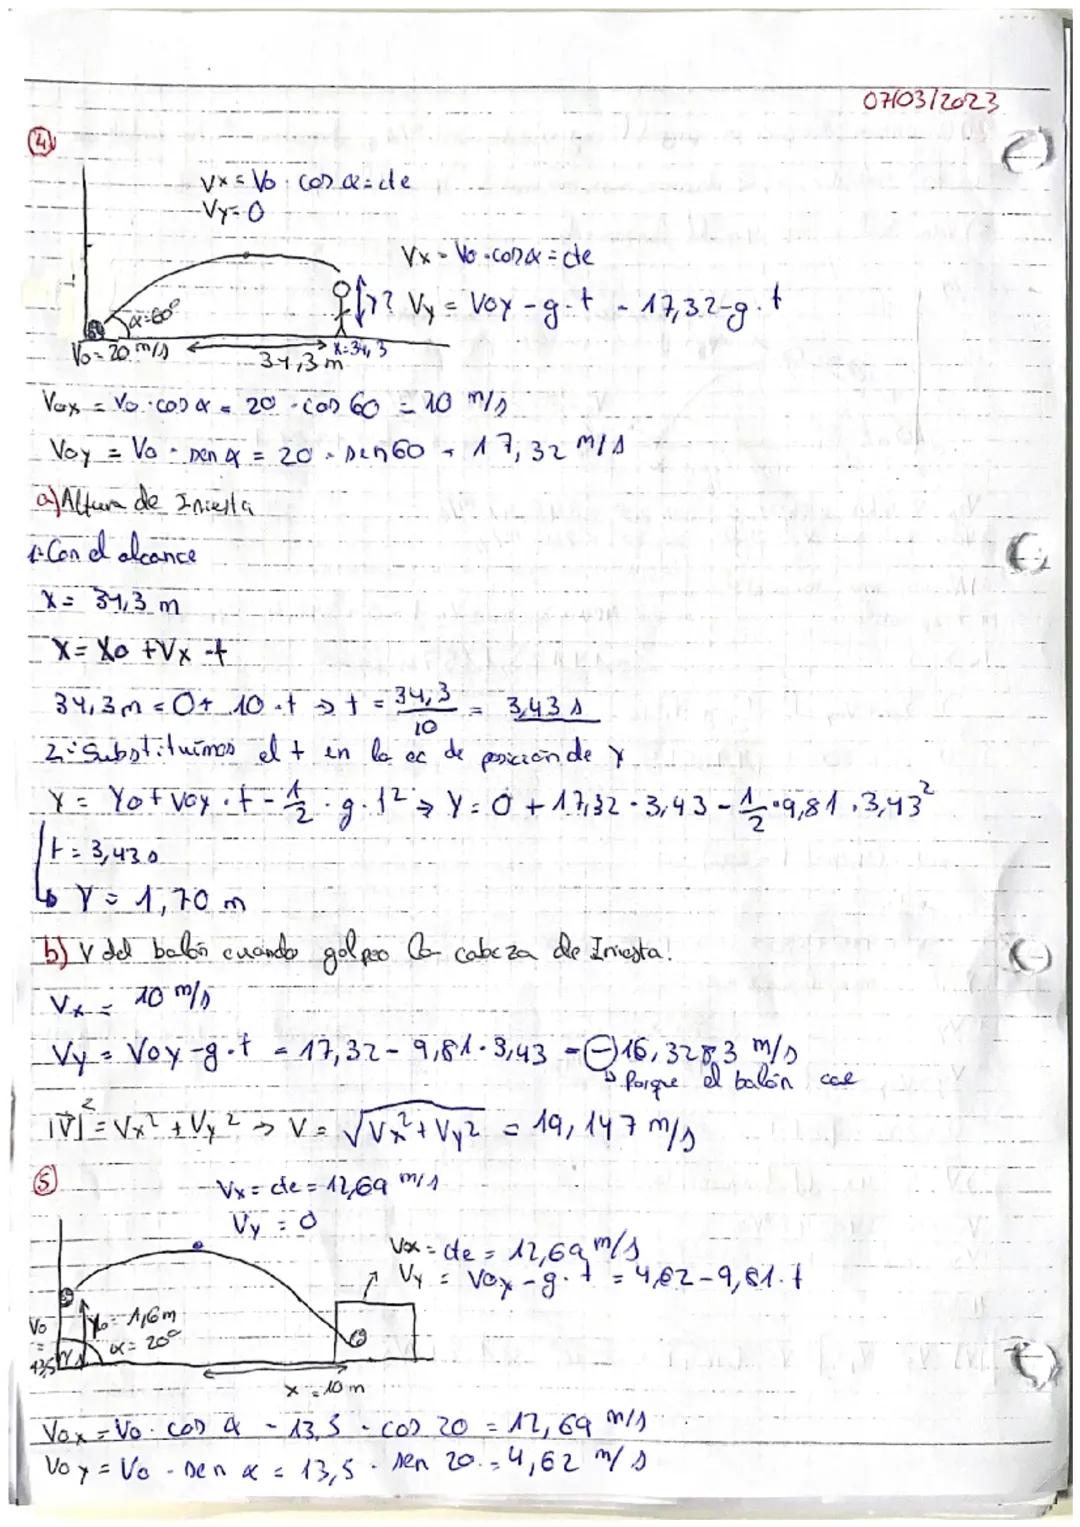 07/03/2023
4
Vx = Vo · cos α = cte
Vy = 0
Vx = Vo · cos α = cte
y? Vy = Voy - g · t = 17,32 - g · t
α = 60º
Vo = 20 m/s
x = 34,3
34,3 m
Vox = Vo · cos α = 20 · cos 60 = 10 m/s
Voy = Vo · sen α = 20 · sen 60 = 17,32 m/s
a) Altura de Iniesta
1º Con el alcance
x = 34,3 m
x = xo + Vx · t
34,3 m = 0 + 10 · t → t = 34,3/10 = 3,43 s
2º Substituimos el t en la ec de posición de y
y = yo + Voy · t - 1/2 · g · t² → y = 0 + 17,32 · 3,43 - 1/2 · 9,81 · 3,43²
t = 3,43 s
↳ y = 1,70 m
b) V del balón cuando golpea la cabeza de Iniesta.
Vx = 10 m/s
Vy = Voy - g · t = 17,32 - 9,81 · 3,43 = -16,3283 m/s
↳ Porque el balón cae
|V|² = Vx² + Vy² → V = √Vx² + Vy² = 19,147 m/s
5
Vx = cte = 12,69 m/s
Vy = 0
Vx = cte = 12,69 m/s
Vy = Voy - g · t = 4,62 - 9,81 · t
yo = 1,6 m
Vo = 13,5
α = 20º
x = 10 m
Vox = Vo · cos α = 13,5 · cos 20 = 12,69 m/s
Voy = Vo · sen α = 13,5 · sen 20 = 4,62 m/s